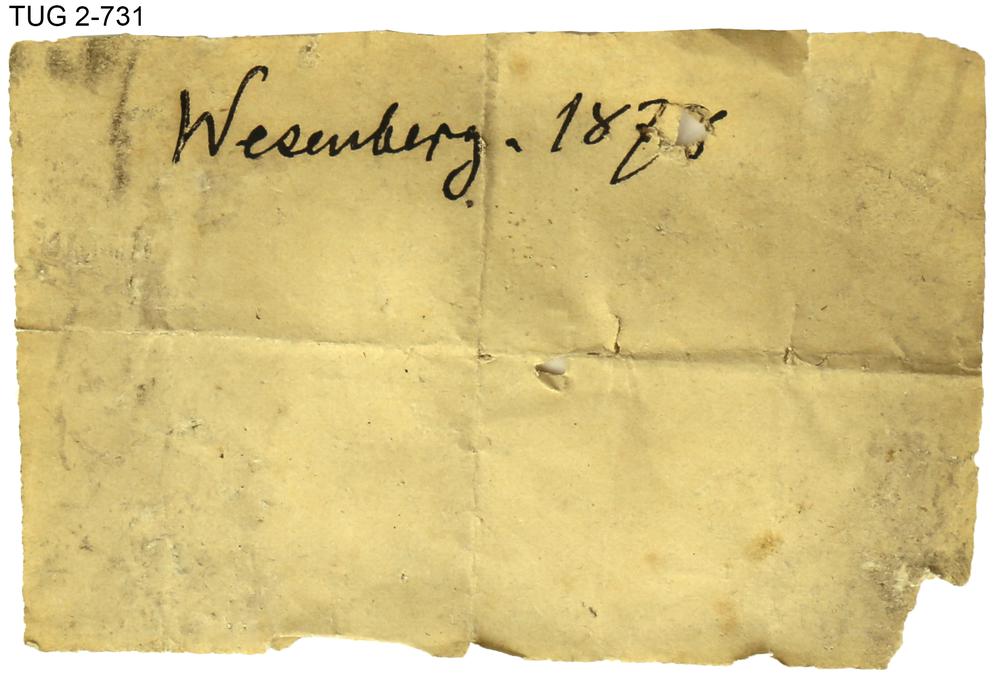 TUG 2-731
Wesenberg. 1878